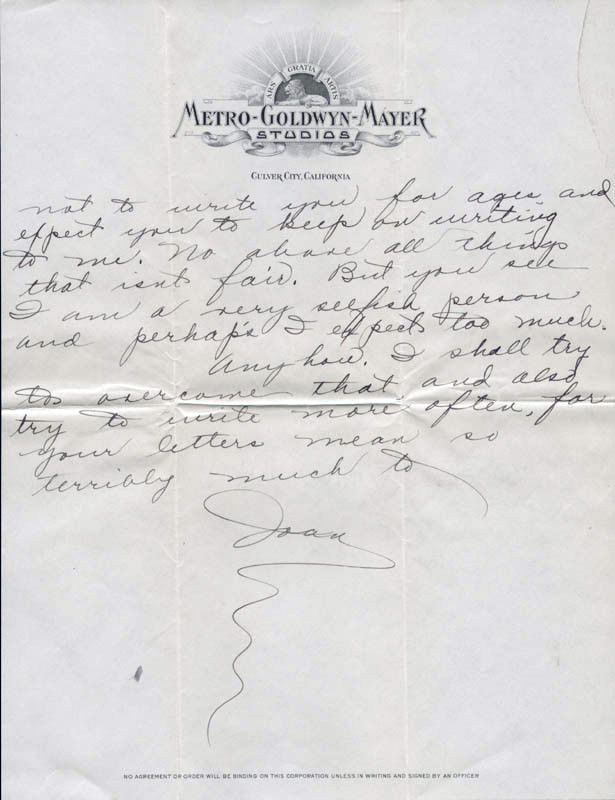 ARS GRATIA ARTIS
METRO-GOLDWYN-MAYER
STUDIOS
CULVER CITY, CALIFORNIA
not to write you for ages and
expect you to keep on writing
to me. No above all things
that isn't fair. But you see
I am a very selfish person
and perhaps I expect too much.
Anyhow. I shall try
to overcome that, and also
try to write more often, for
your letters mean so
terribly much to
Joan
NO AGREEMENT OR ORDER WILL BE BINDING ON THIS CORPORATION UNLESS IN WRITING AND SIGNED BY AN OFFICER